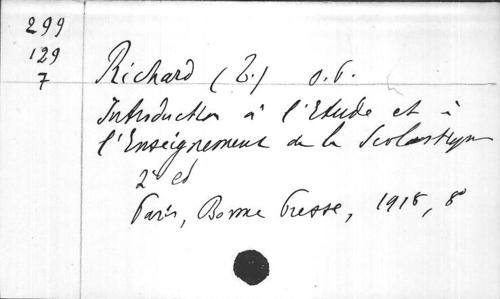 299
129
7
Richard (T.) o.p.
Introduction à l'Etude et à
l'Enseignement de la Scolastique
2e ed
Paris, Bonne Presse, 1918, 8°